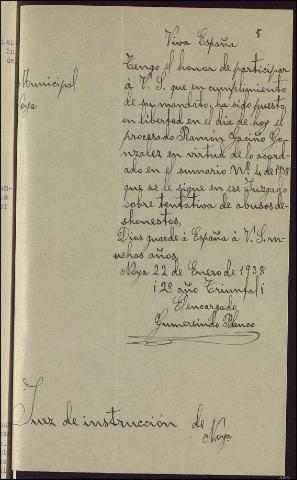 5
Viva España
Tengo el honor de participar
á V. S. que en cumplimiento
de su mandato, ha sido puesto
en libertad en el dia de hoy el
procesado Ramón Gaciño Gon-
zalez en virtud de lo acord-
ado en el sumario Nº 4 de 1938
que se le sigue en ese Juzgado
sobre tentativa de abusos de-
shonestos.
Dios guarde á España á V. S. mu-
chos años.
Noya 22 de Enero de 1938
¡2º año Triunfal¡
El encargado,
Gumersindo Blanco
Municipal
Noya
Juez de instrucción de
Noya